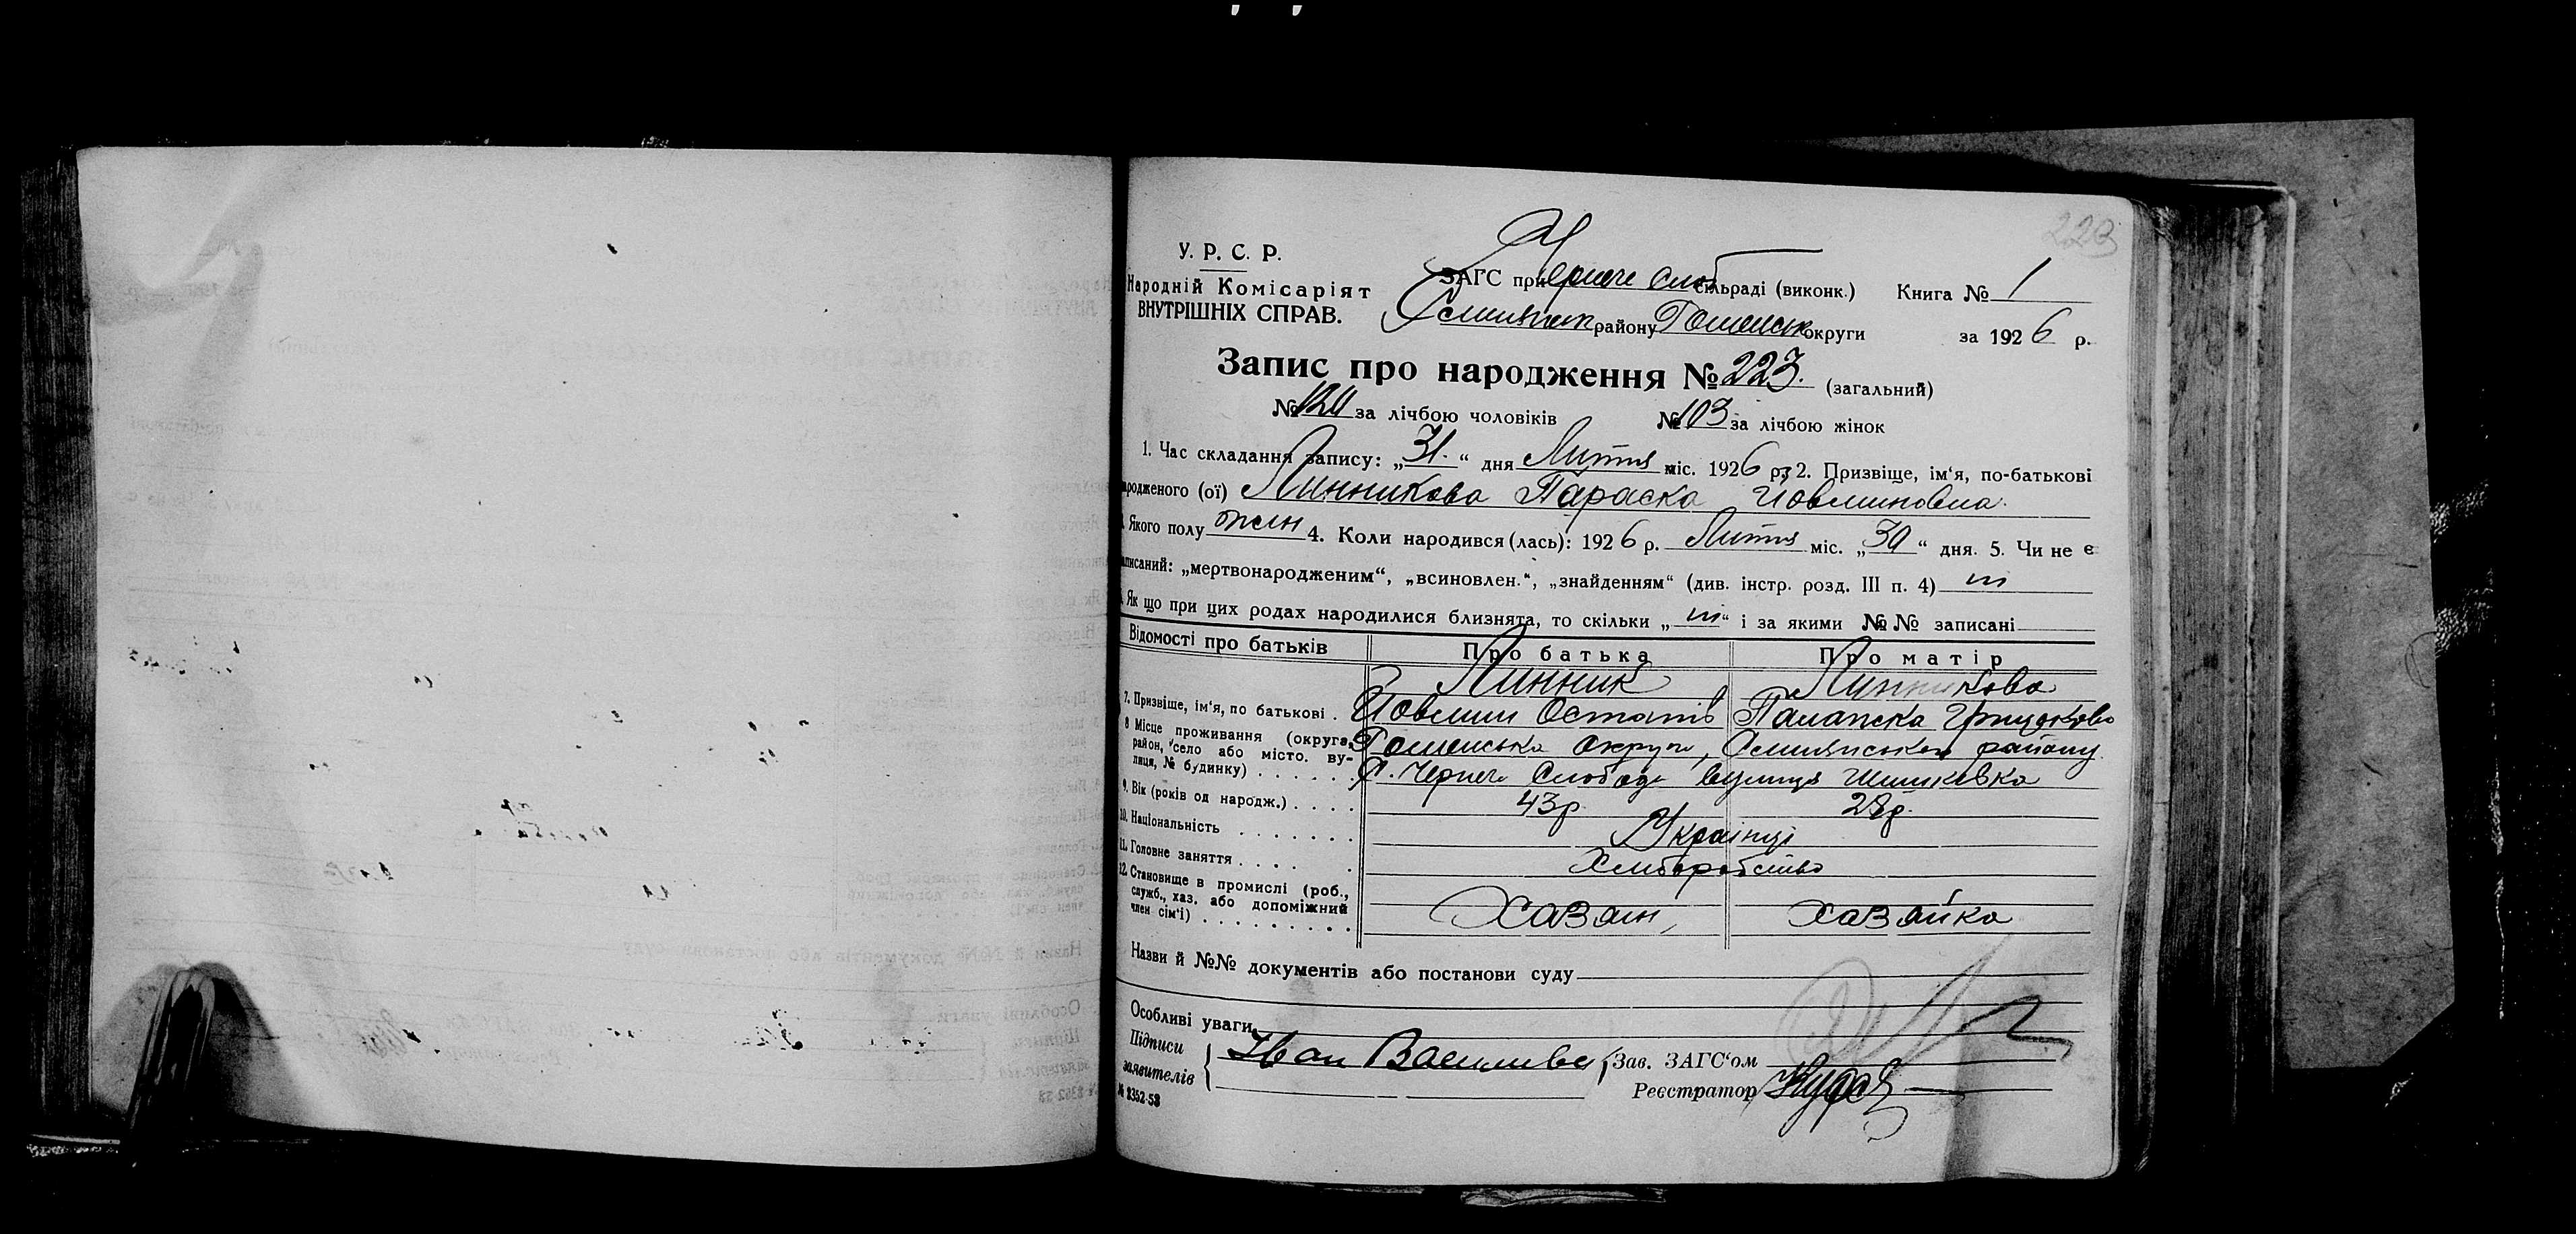 223
У. Р. С. Р.
Народній Комісаріят
ВНУТРІШНІХ СПРАВ.
ЗАГС при Чернече Слоб сільраді (виконк.) Книга № 1
району Роменськ округи за 1926 р.
Запис про народження № 223. (загальний)
№ 120 за лічбою чоловіків № 103 за лічбою жінок
1. Час складання запису: „31.“ дня Липня міс. 1926 р. 2. Призвіще, ім‘я, по-батькові
народженого (ої) Линникова Параска Йовхимовна.
Якого полу жін 4. Коли народився (лась): 1926 р. Липня міс. „30“ дня. 5. Чи не є
записаний: „мертвонародженим“, „всиновлен.“, „знайденням“ (див. інстр. розд. III п. 4) ні
Як що при цих родах народилися близнята, то скільки „ні“ і за якими №№ записані
Відомості про батьків Про батька Про матір
Линник Линникова
7. Призвіще, ім‘я, по батькові . Йовхим Остапів Палажка
8 Місце проживання (округа, район, село або місто, вулиця, № будинку) Роменська округа, району
С. Чернеча Слобода вулиця Шишківка
9. Вік (років од народж.) . . . . 43р. 28р.
10. Національність . . . . . . . Українці
11. Головне заняття . . . . . Хліборобство
12. Становище в промислі (роб.,
служб., хаз. або допоміжний
член сім‘ї) . . . . . . . . . Хазаін хазайка
Назви й №№ документів або постанови суду
Особливі уваги
Підписи
заявителів { Іван Зав. ЗАГС‘ом
Реєстратор
№ 2352-53